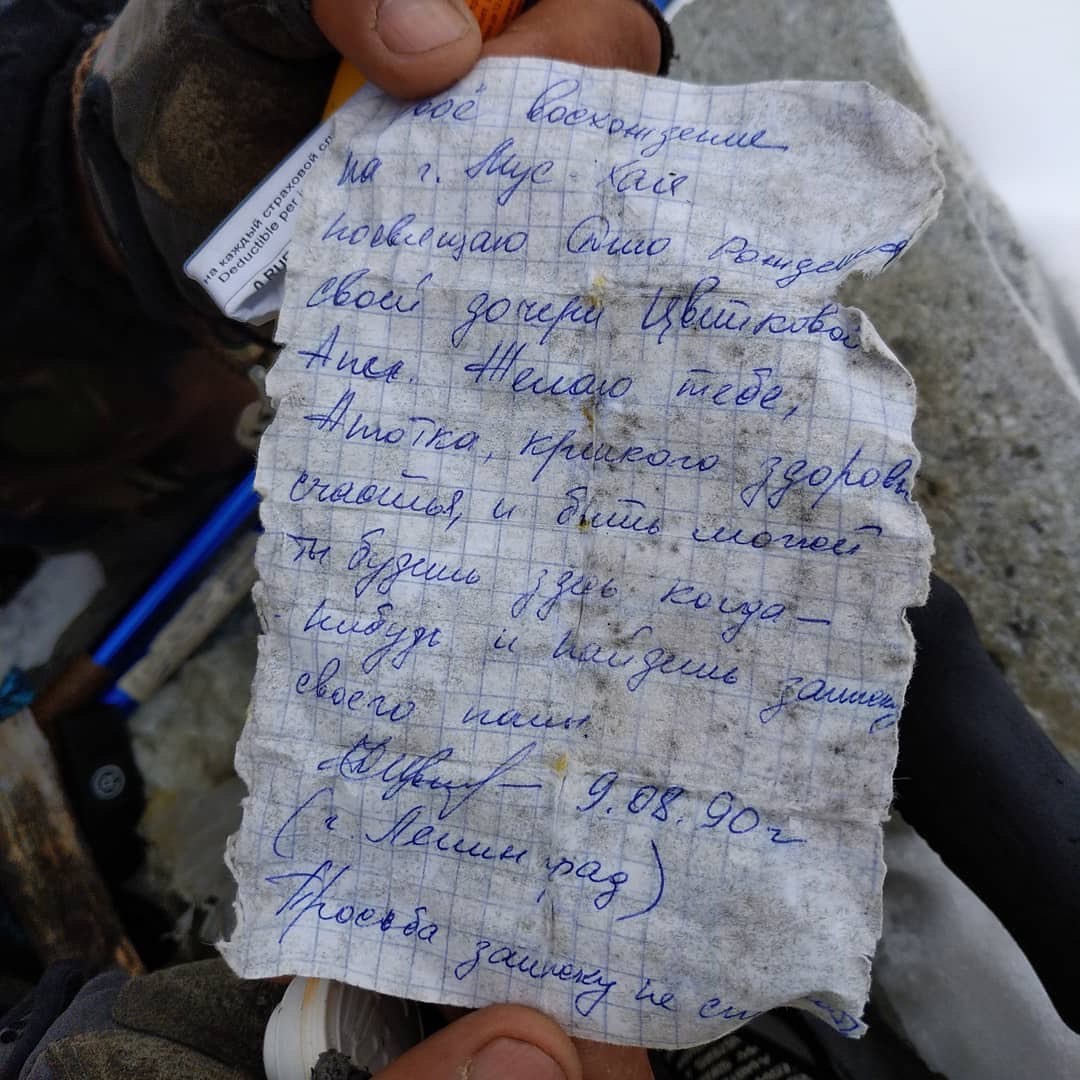 восхождение
на г. Мус-Хая
посвящаю Дню Рождения
своей дочери Цветковой
Ани. Желаю тебе,
Анютка, крепкого здоровья
счастья, и быть может
ты будешь здесь когда-
нибудь и найдешь записку
своего папы.
9.08.90г
(г. Ленинград)
Просьба записку не
на каждый страховой сл
Deductible per